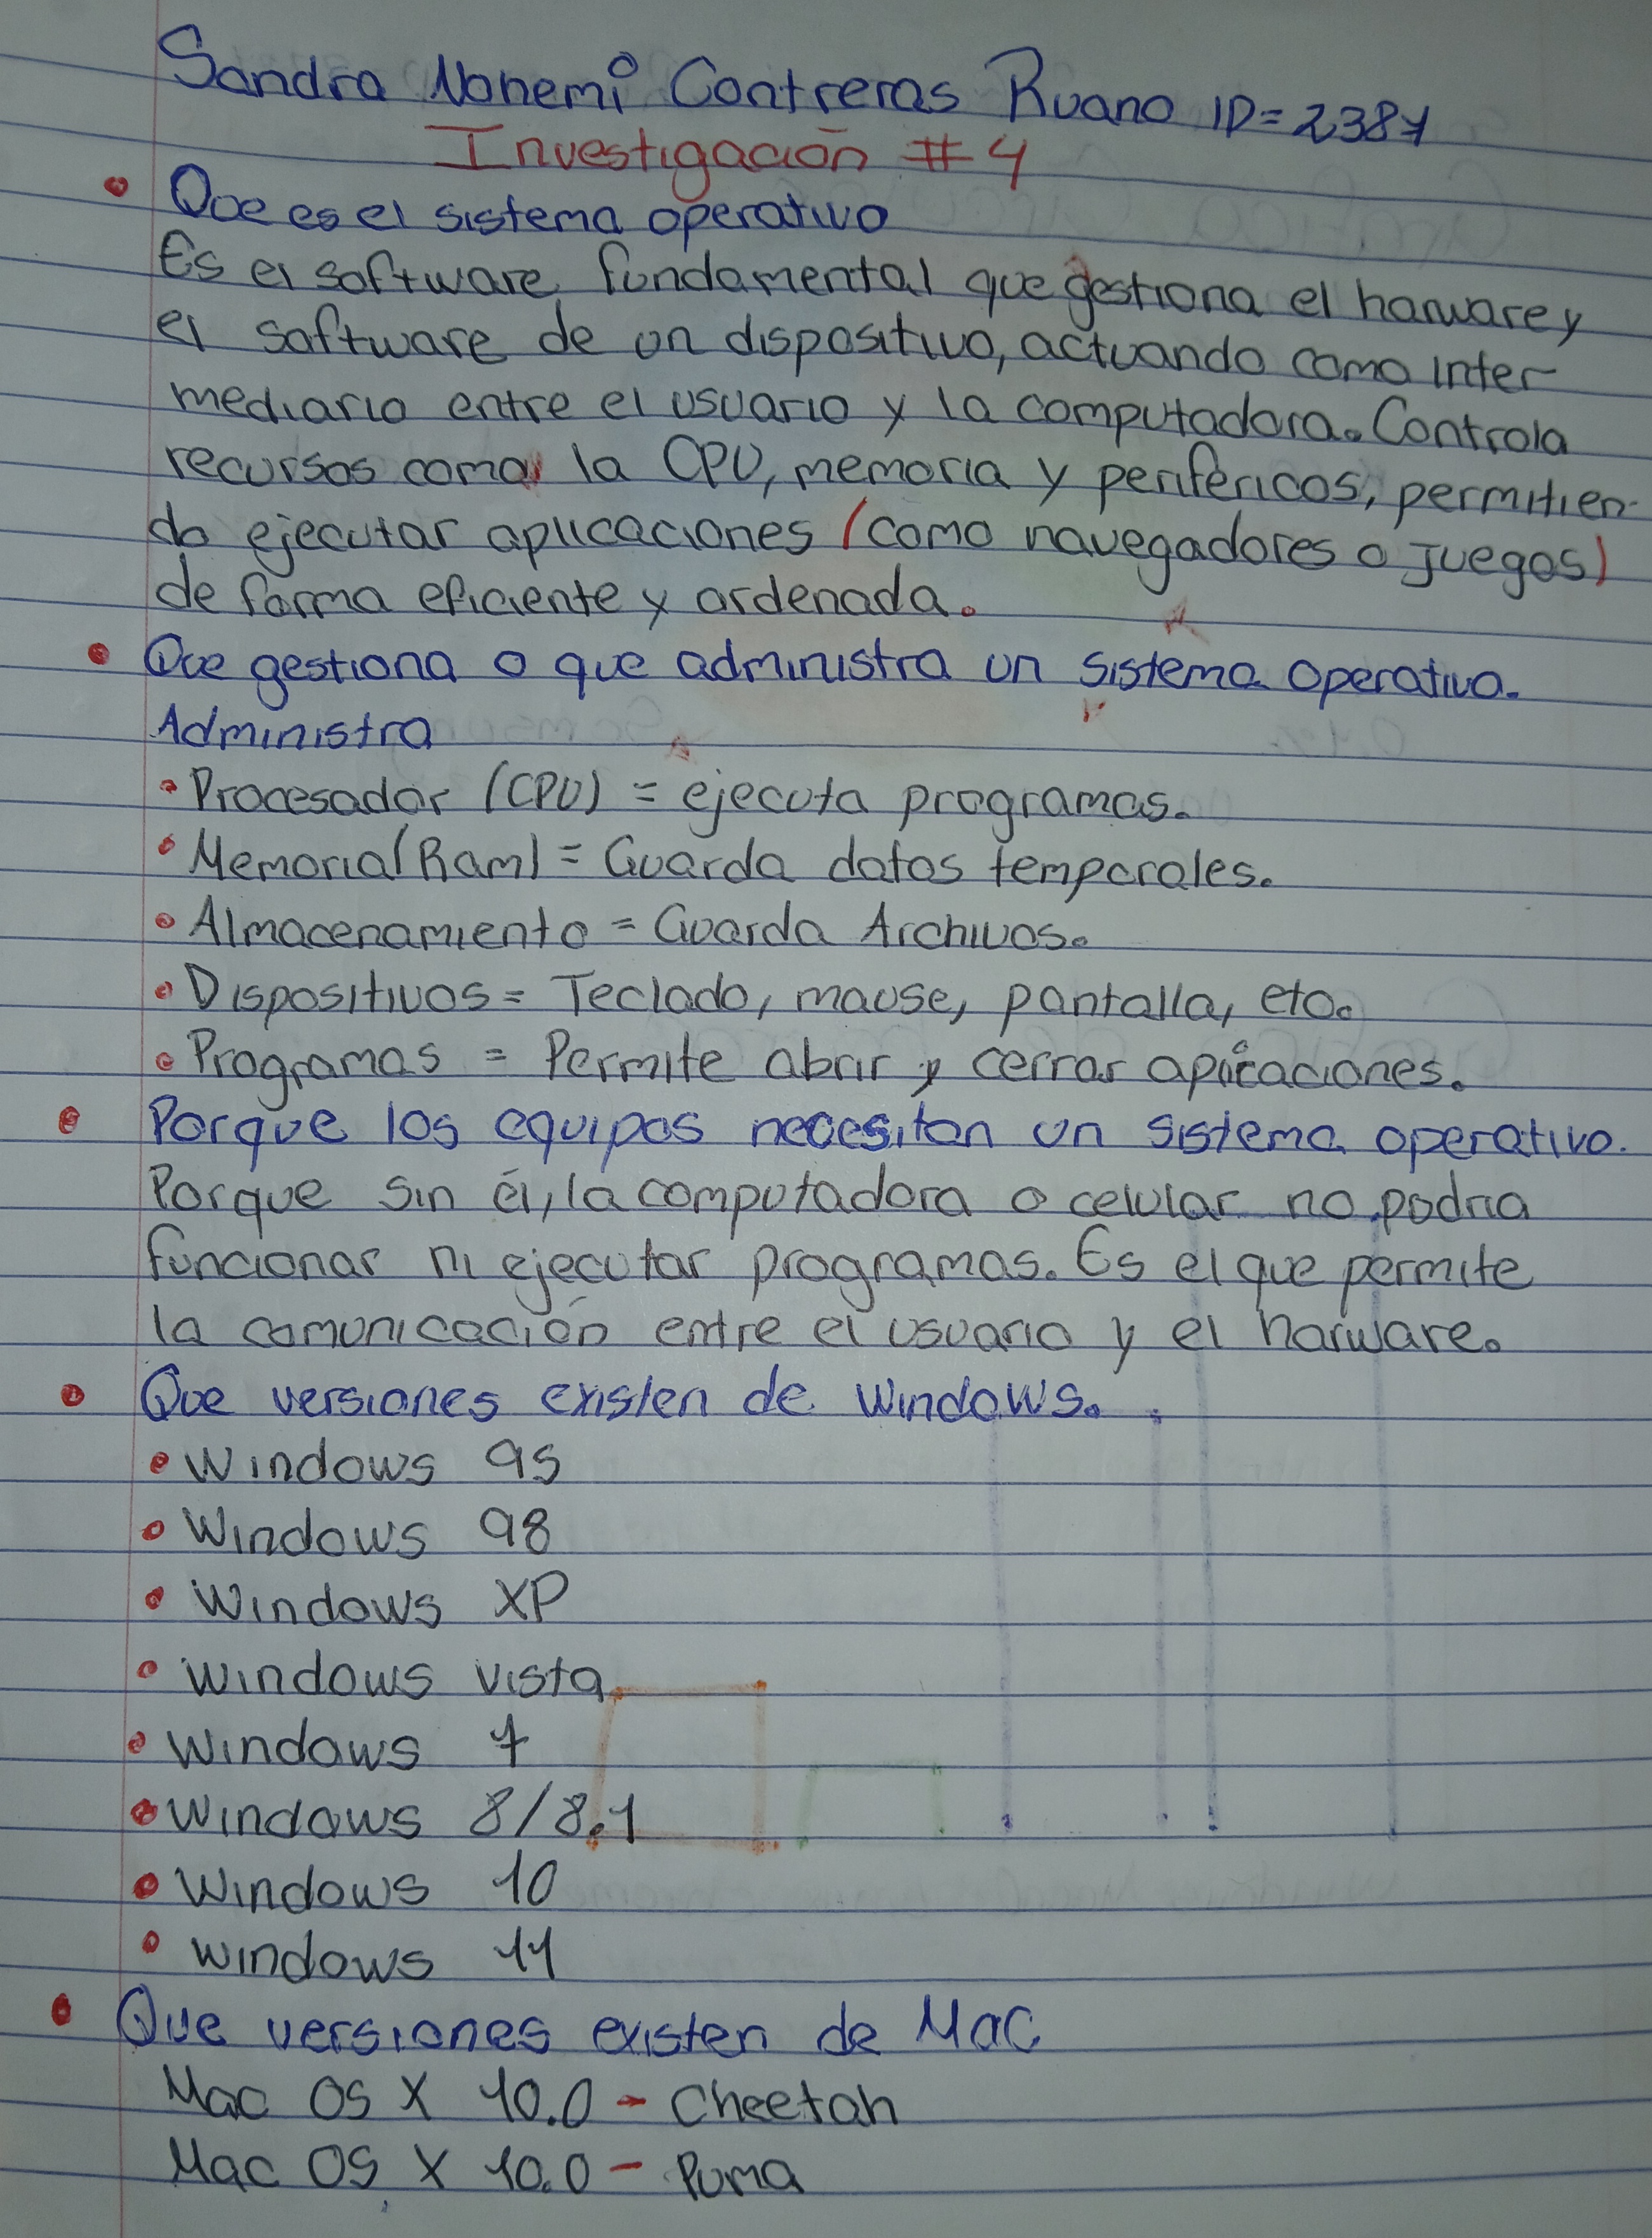 Sandra Nohemi Contreras Ruano ID=2387
Investigación #4
Que es el sistema operativo
Es el software fundamental que gestiona el harware y
el software de un dispositivo, actuando como inter
mediario entre el usuario y la computadora. Controla
recursos como la CPU, memoria y periféricos, permitien-
do ejecutar aplicaciones (como navegadores o juegos)
de forma eficiente y ordenada.
Que gestiona o que administra un sistema operativo.
Administra
• Procesador (CPU) = ejecuta programas.
• Memoria (Ram) = Guarda datos temporales.
• Almacenamiento = Guarda Archivos.
• Dispositivos = Teclado, mause, pantalla, etc.
• Programas = Permite abrir y cerrar aplicaciones.
Porque los equipos necesitan un sistema operativo.
Porque sin él, la computadora o celular no podria
funcionar ni ejecutar programas. Es el que permite
la comunicación entre el usuario y el harware.
Que versiones existen de Windows.
• Windows 95
• Windows 98
• Windows XP
• Windows vista
• Windows 7
• Windows 8/8.1
• Windows 10
• windows 11
Que versiones existen de Mac
Mac OS X 10.0 - Cheetah
Mac OS X 10.0 - Puma